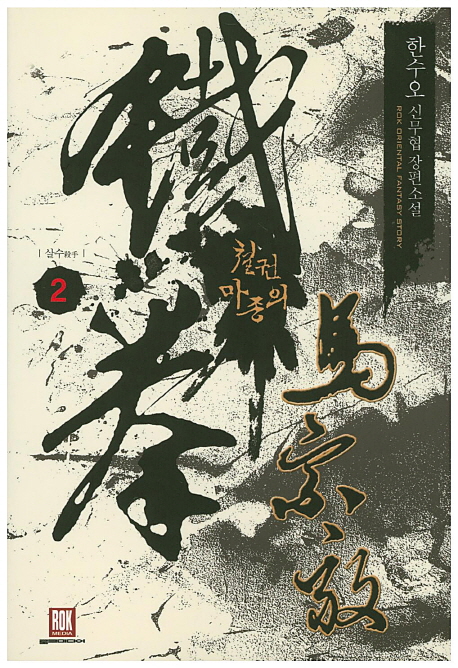 한수오 신무협 장편소설
ROK ORIENTAL FANTASY STORY
鐵拳
철권
마종의
馬宗毅
| 살수殺手 |
2
ROK
MEDIA